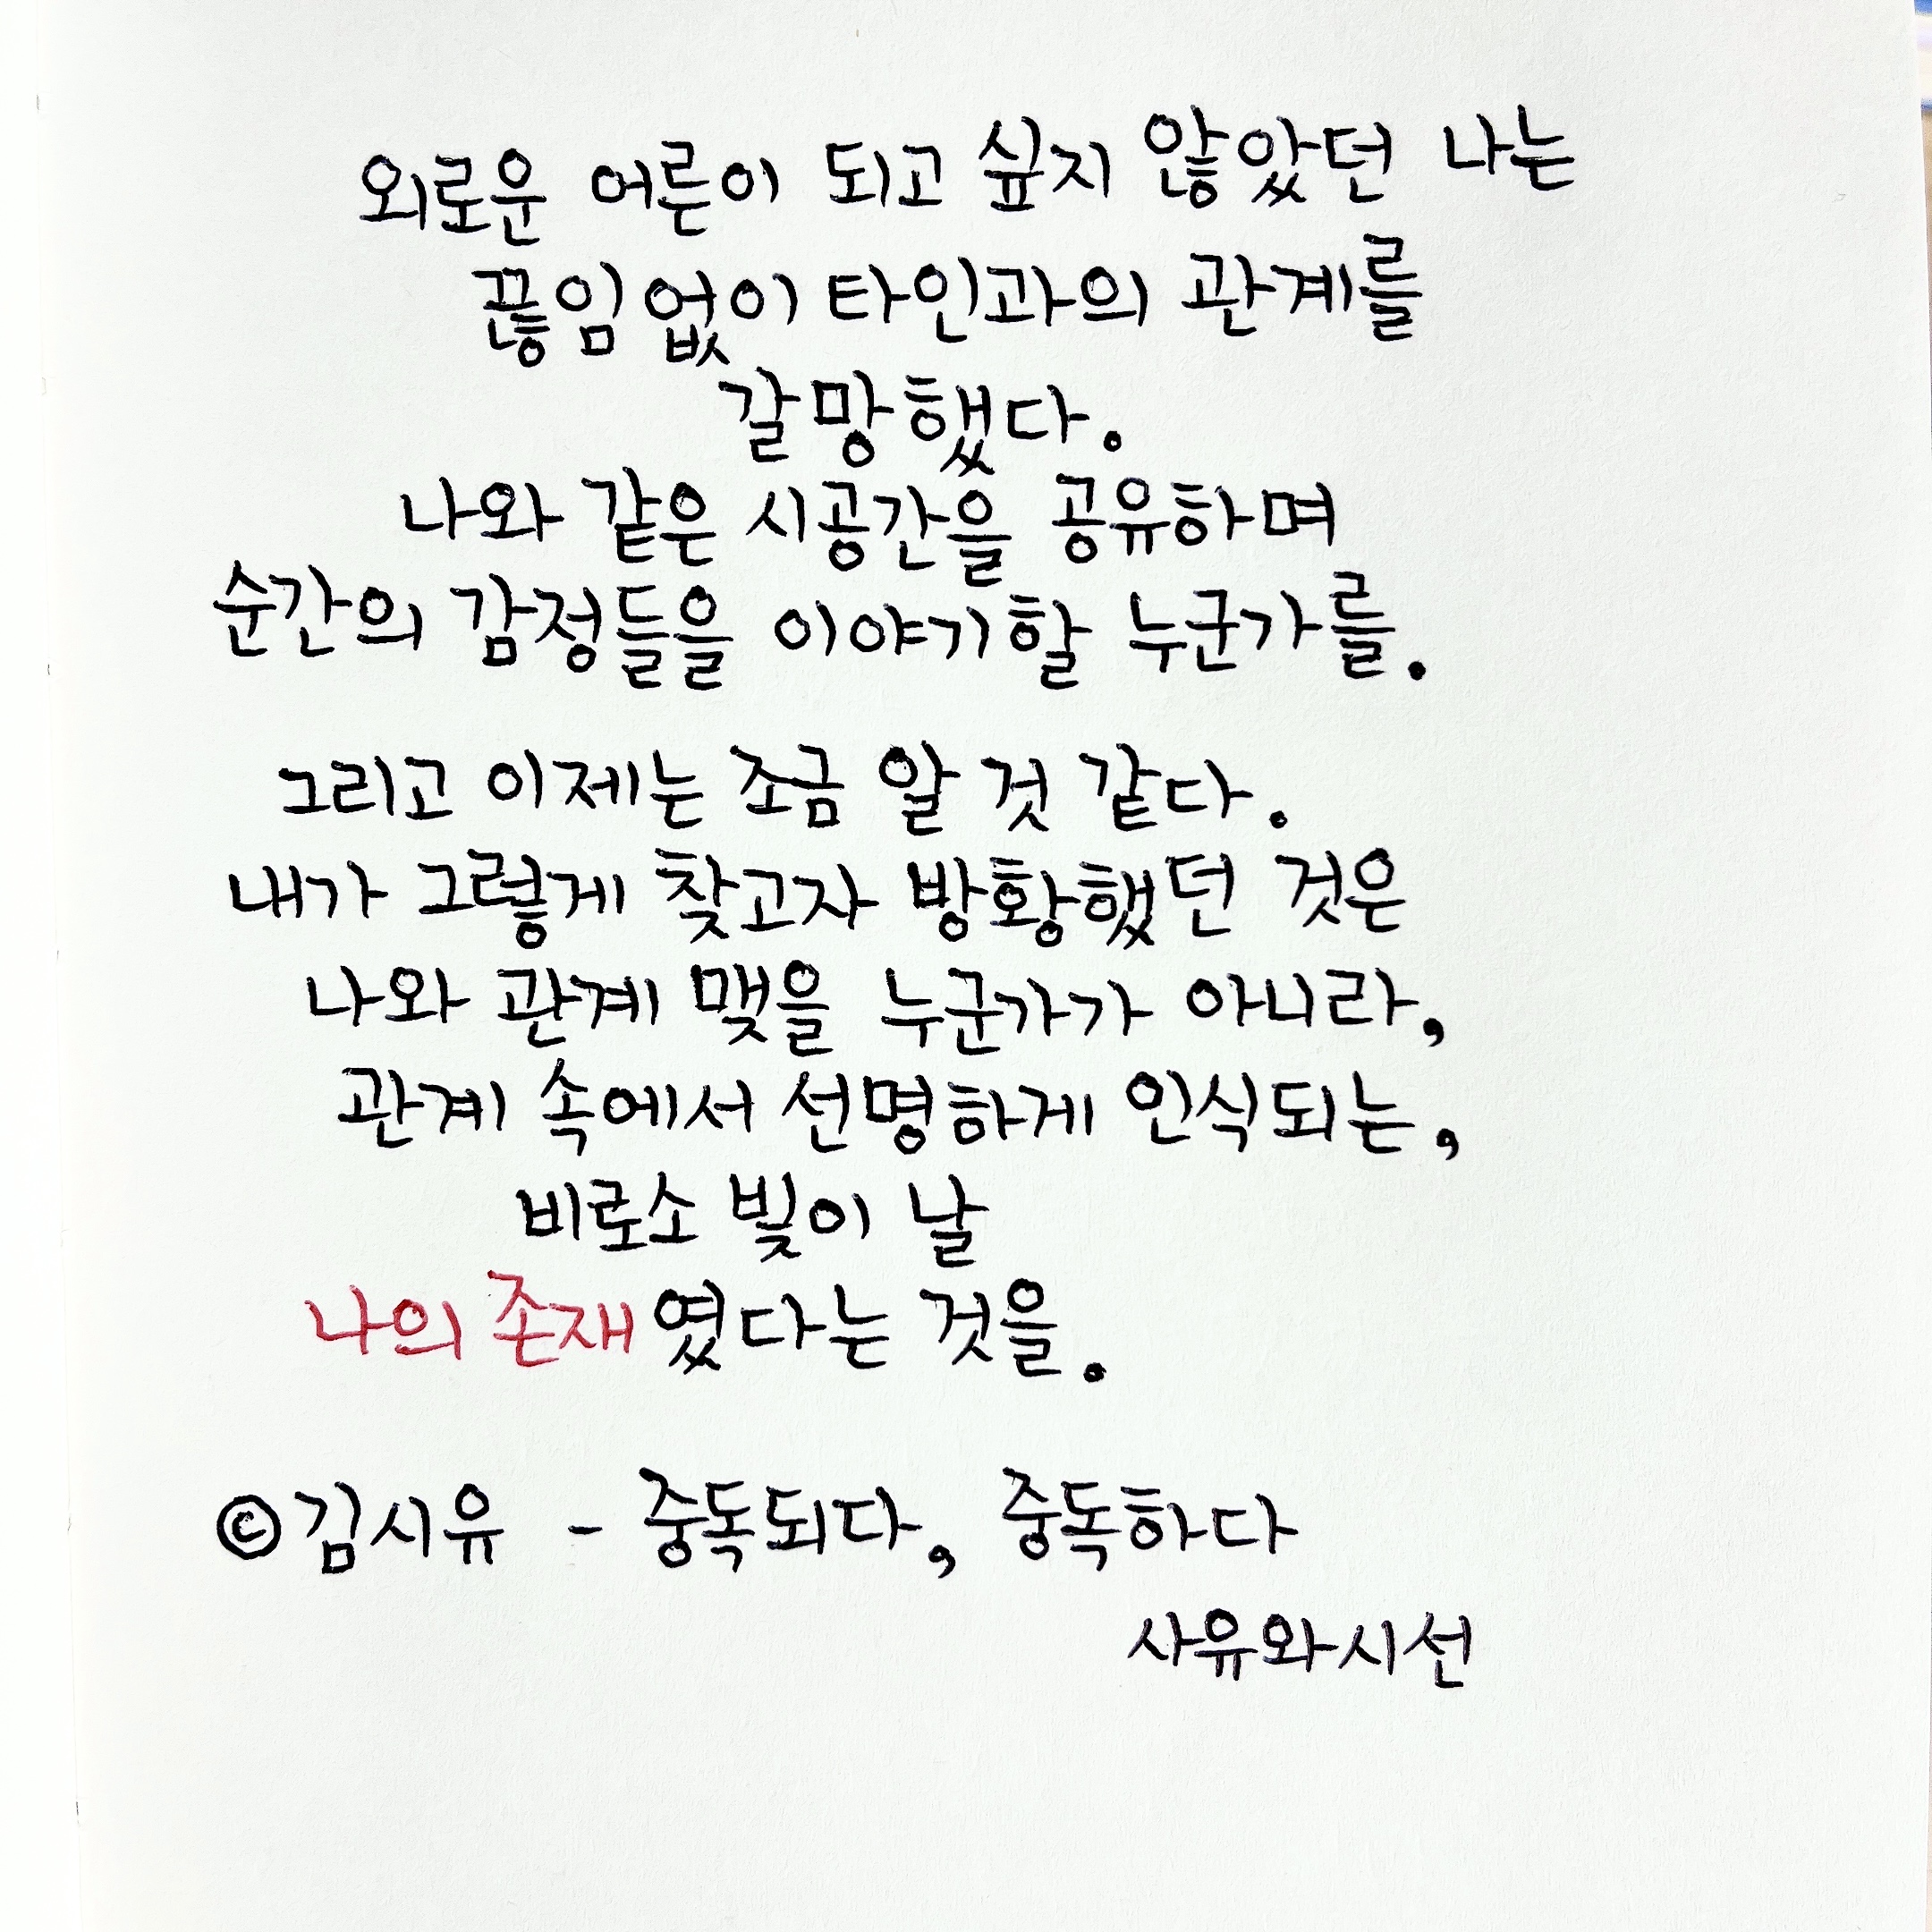 외로운 어른이 되고 싶지 않았던 나는
끊임없이 타인과의 관계를
갈망했다.
나와 같은 시공간을 공유하며
순간의 감정들을 이야기할 누군가를.
그리고 이제는 조금 알 것 같다.
내가 그렇게 찾고자 방황했던 것은
나와 관계 맺을 누군가가 아니라,
관계 속에서 선명하게 인식되는,
비로소 빛이 날
나의 존재였다는 것을.
©김시유 - 중독되다, 중독하다
사유와시선